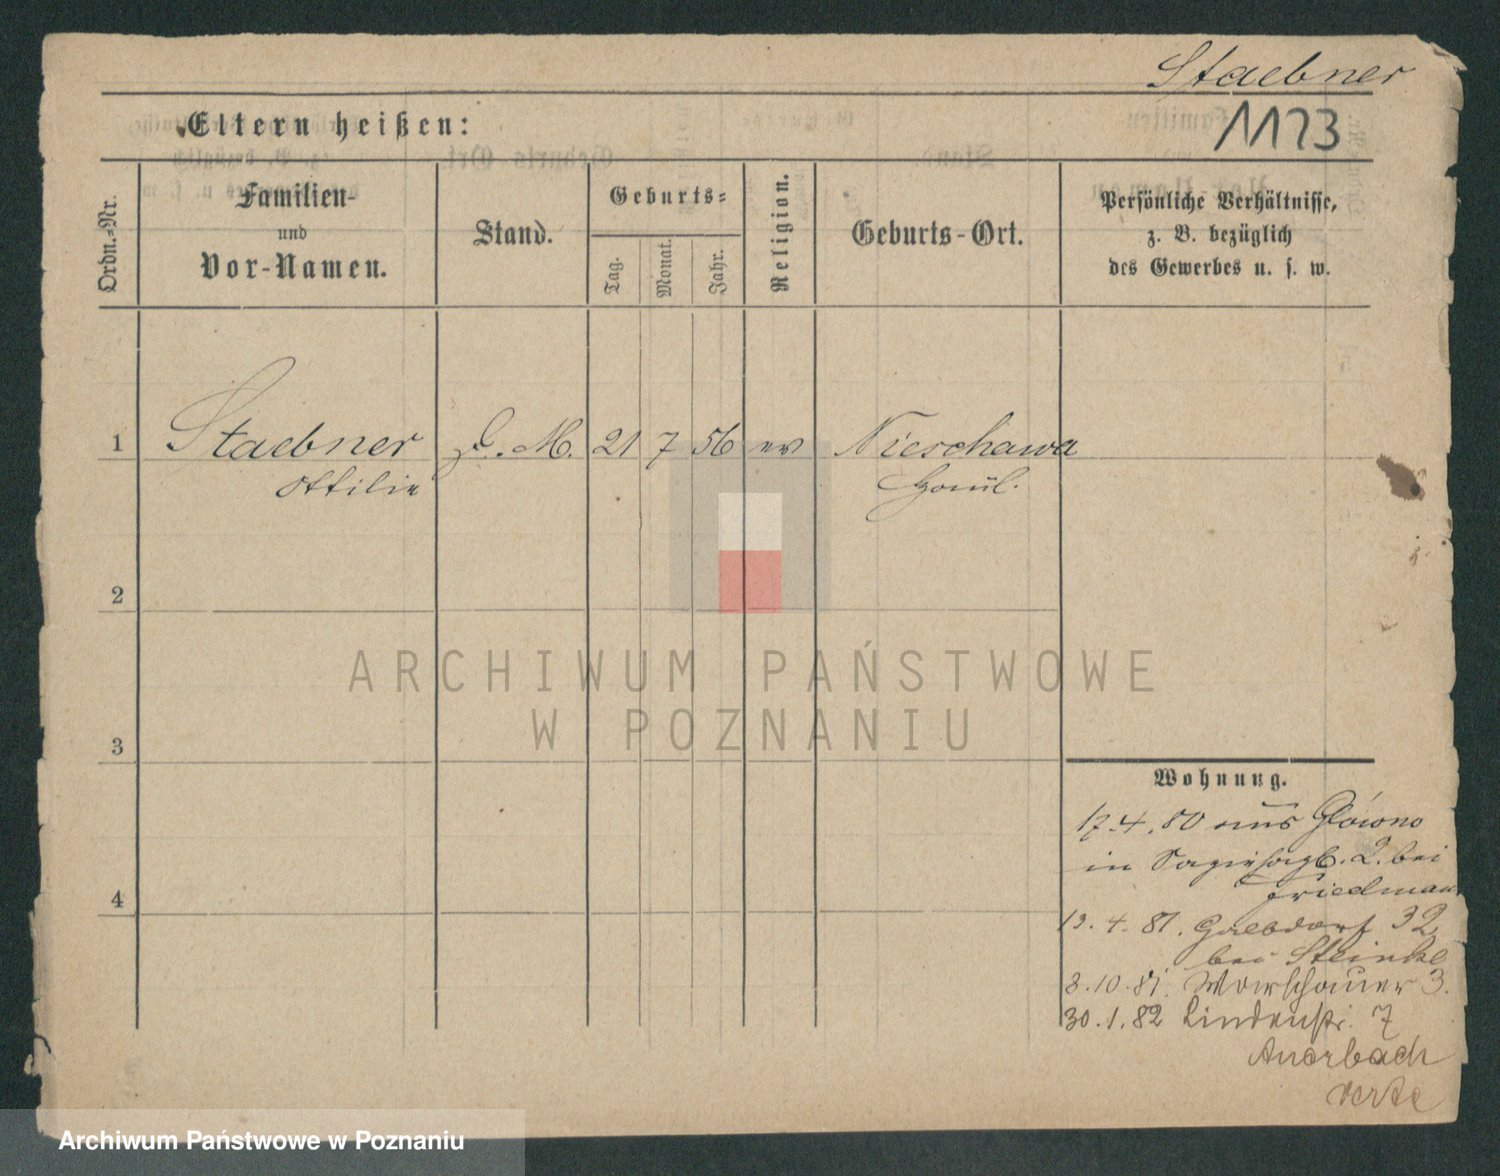 Staebner
1173
Eltern heißen:
Ordn.-Nr.
Familien-
und
Vor-Namen.
Stand.
Geburts-
Tag.
Monat.
Jahr.
Religion.
Geburts-Ort.
Persönliche Verhältnisse,
z. B. bezüglich
des Gewerbes u. s. w.
1 Staebner D. M. 21 7 56 ev Nieschawa
Ottilie
2
3
4
ARCHIWUM PAŃSTWOWE
W POZNANIU
Wohnung.
17.4.80 aus Glówno
in 2. bei
Friedman
13.4.81. 32
bei Steinke
3.10.81. Warschauer 3.
30.1.82 Lindenstr. 7
Auerbach
verte
Archiwum Państwowe w Poznaniu